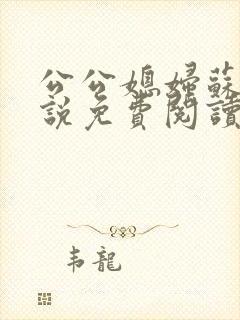 公公媳婦蘇
說免費閱讀
韦龍